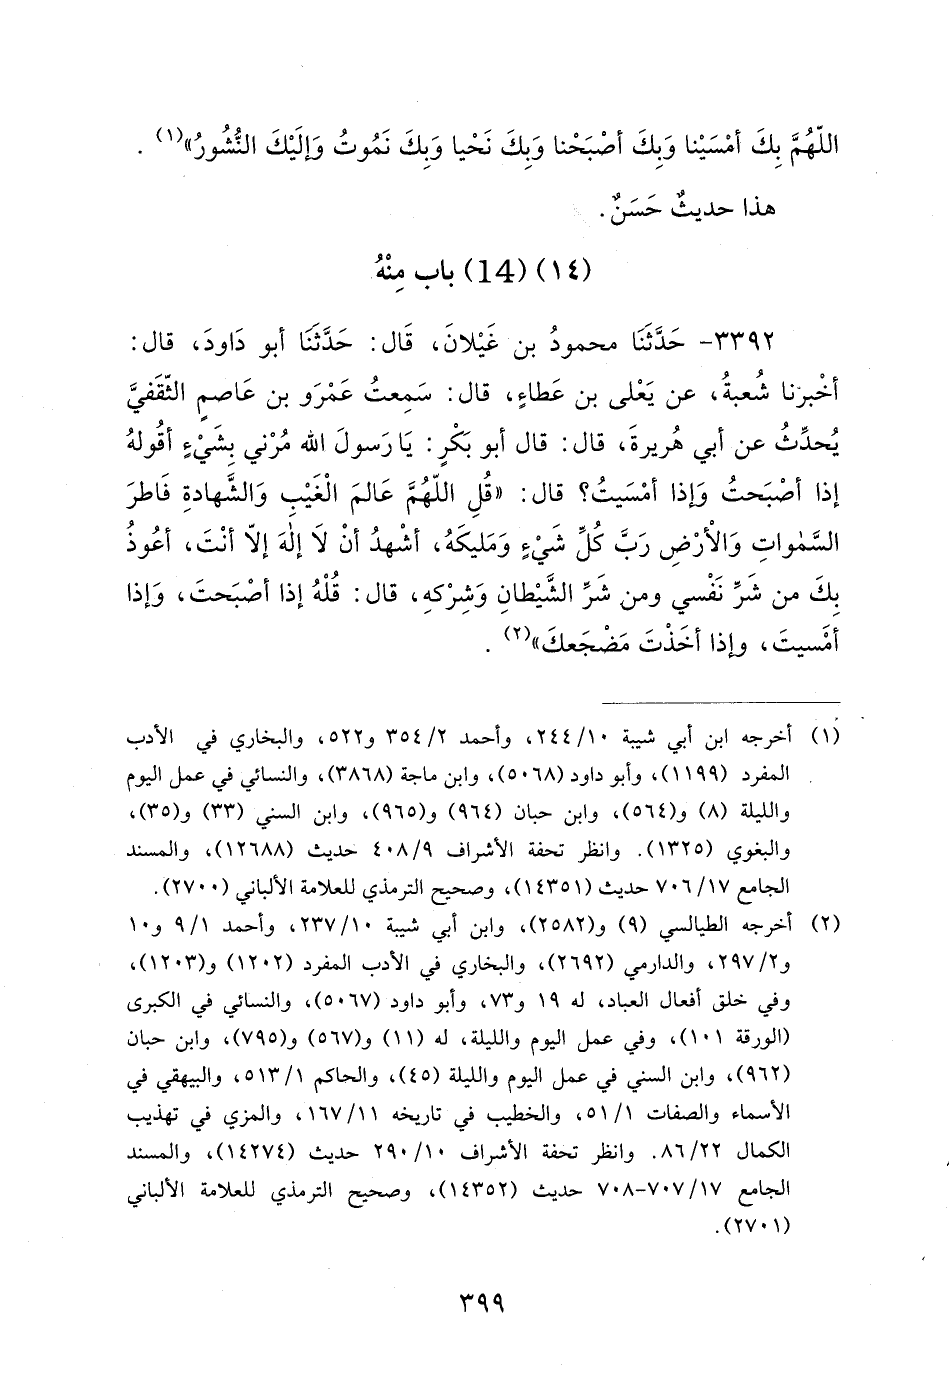 اللّهُمَّ بِكَ أمْسَيْنا وَبِكَ أصْبَحْنا وَبِكَ نَحْيا وَبِكَ نَمُوتُ وَإلَيْكَ النُّشُورُ»(١) .
هذا حديثٌ حَسَنٌ.
(١٤) (14) باب مِنْهُ
٣٣٩٢- حَدَّثَنَا محمودُ بن غَيْلانَ، قَال: حَدَّثَنَا أبو دَاودَ، قال:
أخْبرَنا شُعبةُ، عن يَعْلى بن عَطاءٍ، قال: سَمِعتُ عَمْرَو بن عَاصمٍ الثَّقَفيَّ
يُحدِّثُ عن أبي هُريرةَ، قال: قال أبو بَكْرٍ: يَا رسولَ الله مُرْني بِشَيْءٍ أقُولهُ
إذا أصْبَحتُ وَإذا أمْسَيتُ؟ قال: «قُلِ اللّهُمَّ عَالمَ الْغَيْبِ وَالشَّهادةِ فَاطرَ
السَّمٰواتِ وَالْأرْضِ رَبَّ كُلِّ شَيْءٍ وَمَليكَهُ، أشْهدُ أنْ لَا إلٰهَ إلاّ أنْتَ، أعُوذُ
بِكَ من شَرِّ نَفْسي ومن شَرِّ الشَّيْطانِ وَشِركهِ، قال: قُلْهُ إذا أصْبَحتَ، وَإذا
أمْسيتَ، وإذا أخَذْتَ مَضْجَعكَ»(٢) .
(١) أخرجه ابن أبي شيبة ١٠/ ٢٤٤، وأحمد ٢/ ٣٥٤ و٥٢٢، والبخاري في الأدب
المفرد (١١٩٩)، وأبو داود (٥٠٦٨)، وابن ماجة (٣٨٦٨)، والنسائي في عمل اليوم
والليلة (٨) و(٥٦٤)، وابن حبان (٩٦٤) و(٩٦٥)، وابن السني (٣٣) و(٣٥)،
والبغوي (١٣٢٥). وانظر تحفة الأشراف ٩/ ٤٠٨ حديث (١٢٦٨٨)، والمسند
الجامع ١٧/ ٧٠٦ حديث (١٤٣٥١)، وصحيح الترمذي للعلامة الألباني (٢٧٠٠).
(٢) أخرجه الطيالسي (٩) و(٢٥٨٢)، وابن أبي شيبة ١٠/ ٢٣٧، وأحمد ١/ ٩ و١٠
و٢/ ٢٩٧، والدارمي (٢٦٩٢)، والبخاري في الأدب المفرد (١٢٠٢) و(١٢٠٣)،
وفي خلق أفعال العباد، له ١٩ و٧٣، وأبو داود (٥٠٦٧)، والنسائي في الكبرى
(الورقة ١٠١)، وفي عمل اليوم والليلة، له (١١) و(٥٦٧) و(٧٩٥)، وابن حبان
(٩٦٢)، وابن السني في عمل اليوم والليلة (٤٥)، والحاكم ١/ ٥١٣، والبيهقي في
الأسماء والصفات ١/ ٥١، والخطيب في تاريخه ١١/ ١٦٧، والمزي في تهذيب
الكمال ٢٢/ ٨٦. وانظر تحفة الأشراف ١٠/ ٢٩٠ حديث (١٤٢٧٤)، والمسند
الجامع ١٧/ ٧٠٧-٧٠٨ حديث (١٤٣٥٢)، وصحيح الترمذي للعلامة الألباني
(٢٧٠١).
٣٩٩